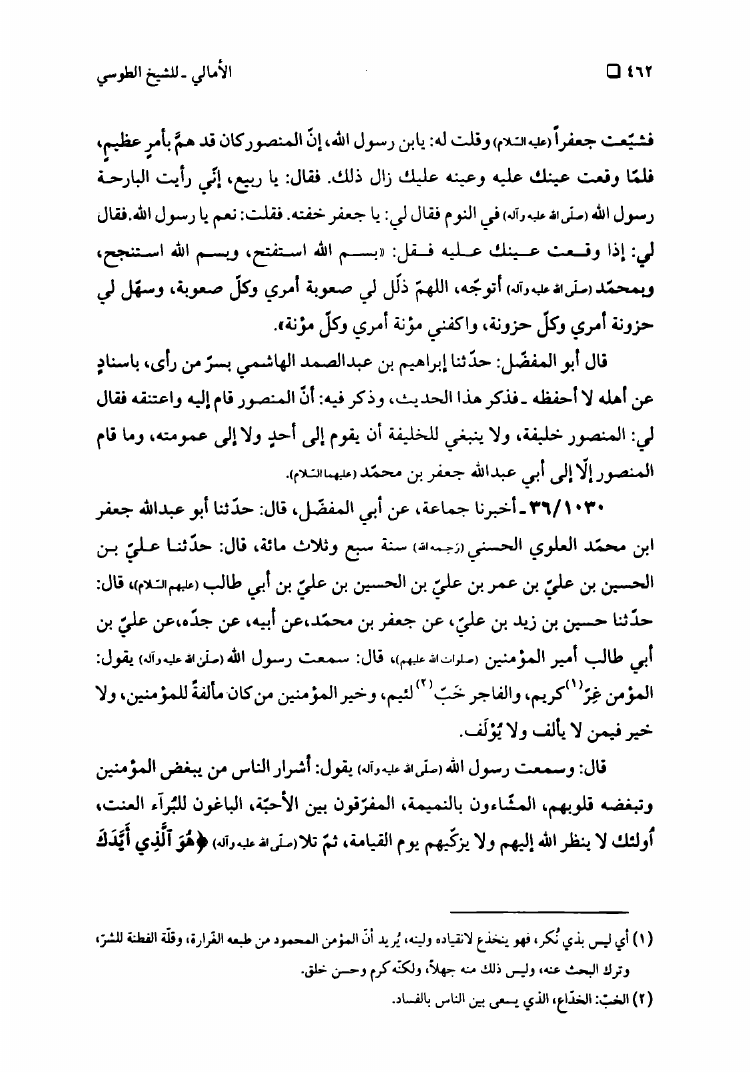 ٤٦٢ □ الأمالي ـ للشيخ الطوسي
فشيّعت جعفراً (عليه السّلام) وقلت له: يابن رسول الله، إنّ المنصور كان قد همَّ بأمرٍ عظيمٍ،
فلمّا وقعت عينك عليه وعينه عليك زال ذلك. فقال: يا ربيع، إنّي رأيت البارحة
رسول الله (صلّى الله عليه وآله) في النوم فقال لي: يا جعفر خفته. فقلت: نعم يا رسول الله. فقال
لي: إذا وقعت عينك عليه فقل: «بسم الله استفتح، وبسم الله استنجح،
وبمحمّد (صلّى الله عليه وآله) أتوجّه، اللهمّ ذلّل لي صعوبة أمري وكلّ صعوبة، وسهّل لي
حزونة أمري وكلّ حزونة، واكفني مؤنة أمري وكلّ مؤنة».
قال أبو المفضّل: حدّثنا إبراهيم بن عبدالصمد الهاشمي بسرّ من رأى، باسنادٍ
عن أهله لا أحفظه ـ فذكر هذا الحديث، وذكر فيه: أنّ المنصور قام إليه واعتنقه فقال
لي: المنصور خليفة، ولا ينبغي للخليفة أن يقوم إلى أحدٍ ولا إلى عمومته، وما قام
المنصور إلّا إلى أبي عبدالله جعفر بن محمّد (عليهما السّلام).
٣٦/١٠٣٠ ـ أخبرنا جماعة، عن أبي المفضّل، قال: حدّثنا أبو عبدالله جعفر
ابن محمّد العلوي الحسني (رَحِمه الله) سنة سبع وثلاث مائة، قال: حدّثنا عليّ بن
الحسين بن عليّ بن عمر بن عليّ بن الحسين بن عليّ بن أبي طالب (عليهم السّلام)، قال:
حدّثنا حسين بن زيد بن عليّ، عن جعفر بن محمّد، عن أبيه، عن جدّه، عن عليّ بن
أبي طالب أمير المؤمنين (صلوات الله عليهم)، قال: سمعت رسول الله (صلّى الله عليه وآله) يقول:
المؤمن غِرّ(١) كريم، والفاجر خَبّ(٢) لئيم، وخير المؤمنين من كان مألفةً للمؤمنين، ولا
خير فيمن لا يألف ولا يُؤلَف.
قال: وسمعت رسول الله (صلّى الله عليه وآله) يقول: أشرار الناس من يبغض المؤمنين
وتبغضه قلوبهم، المشّاءون بالنميمة، المفرّقون بين الأحبّة، الباغون للبُرآء العنت،
أولئك لا ينظر الله إليهم ولا يزكّيهم يوم القيامة، ثمّ تلا (صلّى الله عليه وآله) ﴿هُوَ ٱلَّذِي أَيَّدَكَ
(١) أي ليس بذي نُكر، فهو ينخدع لانقياده ولينه، يُريد أنّ المؤمن المحمود من طبعه الغَرارة، وقلّة الفطنة للشرّ،
وترك البحث عنه، وليس ذلك منه جهلاً، ولكنّه كرم وحسن خلق.
(٢) الخبّ: الخدّاع، الذي يسعى بين الناس بالفساد.